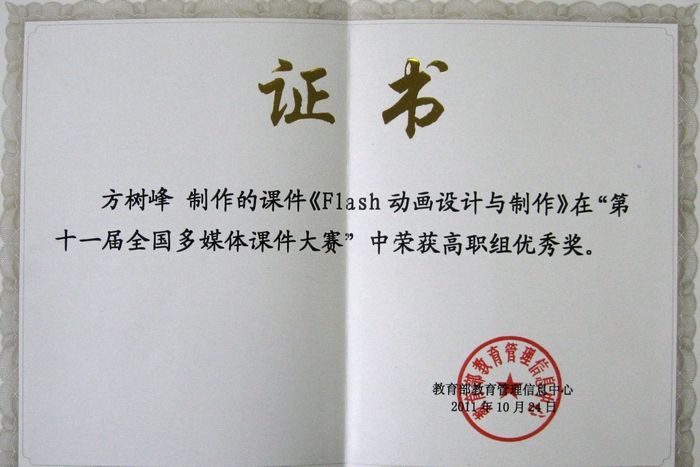 证书
方树峰 制作的课件《Flash 动画设计与制作》在“第
十一届全国多媒体课件大赛” 中荣获高职组优秀奖。
教育部教育管理信息中心
教育部教育管理信息中心
2011 年 10 月 24 日